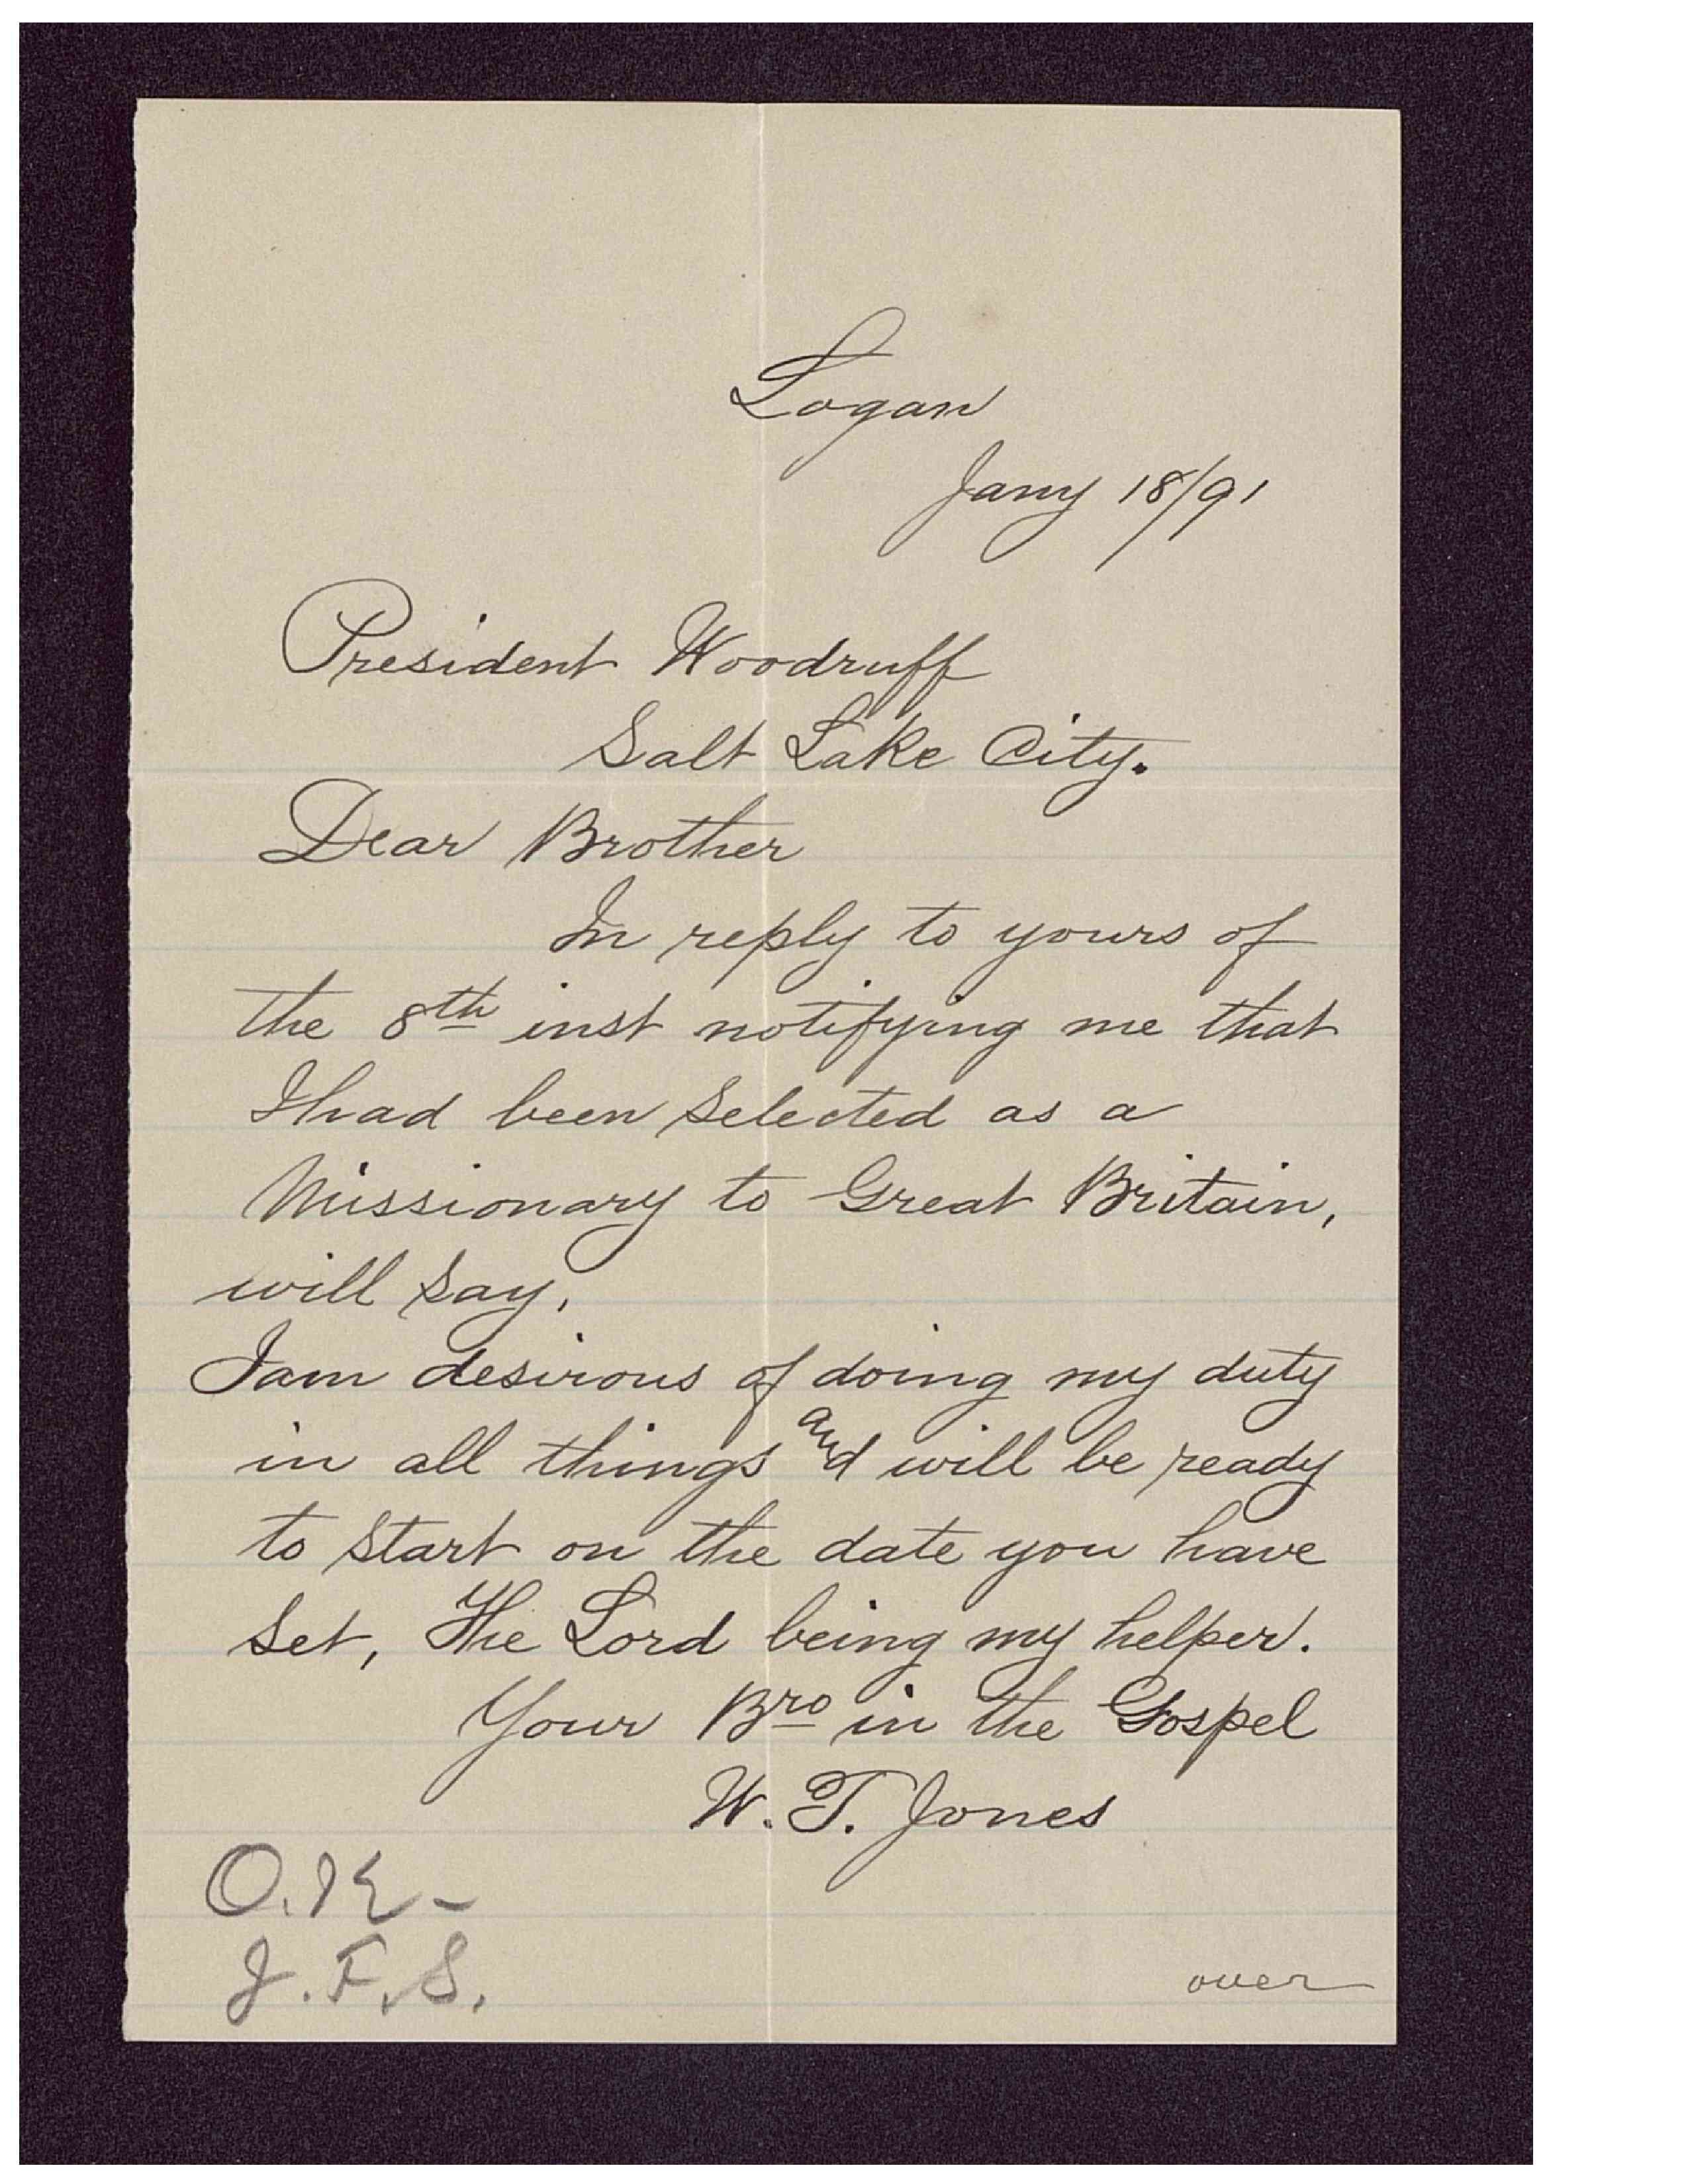 Logan
Jany 18/91
President Woodruff
Salt Lake City.
Dear Brother
In reply to yours of
the 8th inst notifying me that
I had been selected as a
Missionary to Great Britain,
will say,
I am desirous of doing my duty
in all things and will be ready
to start on the date you have
set, The Lord being my helper.
Your Bro in the Gospel
W. T. Jones
O.K-
J.F.S.
over